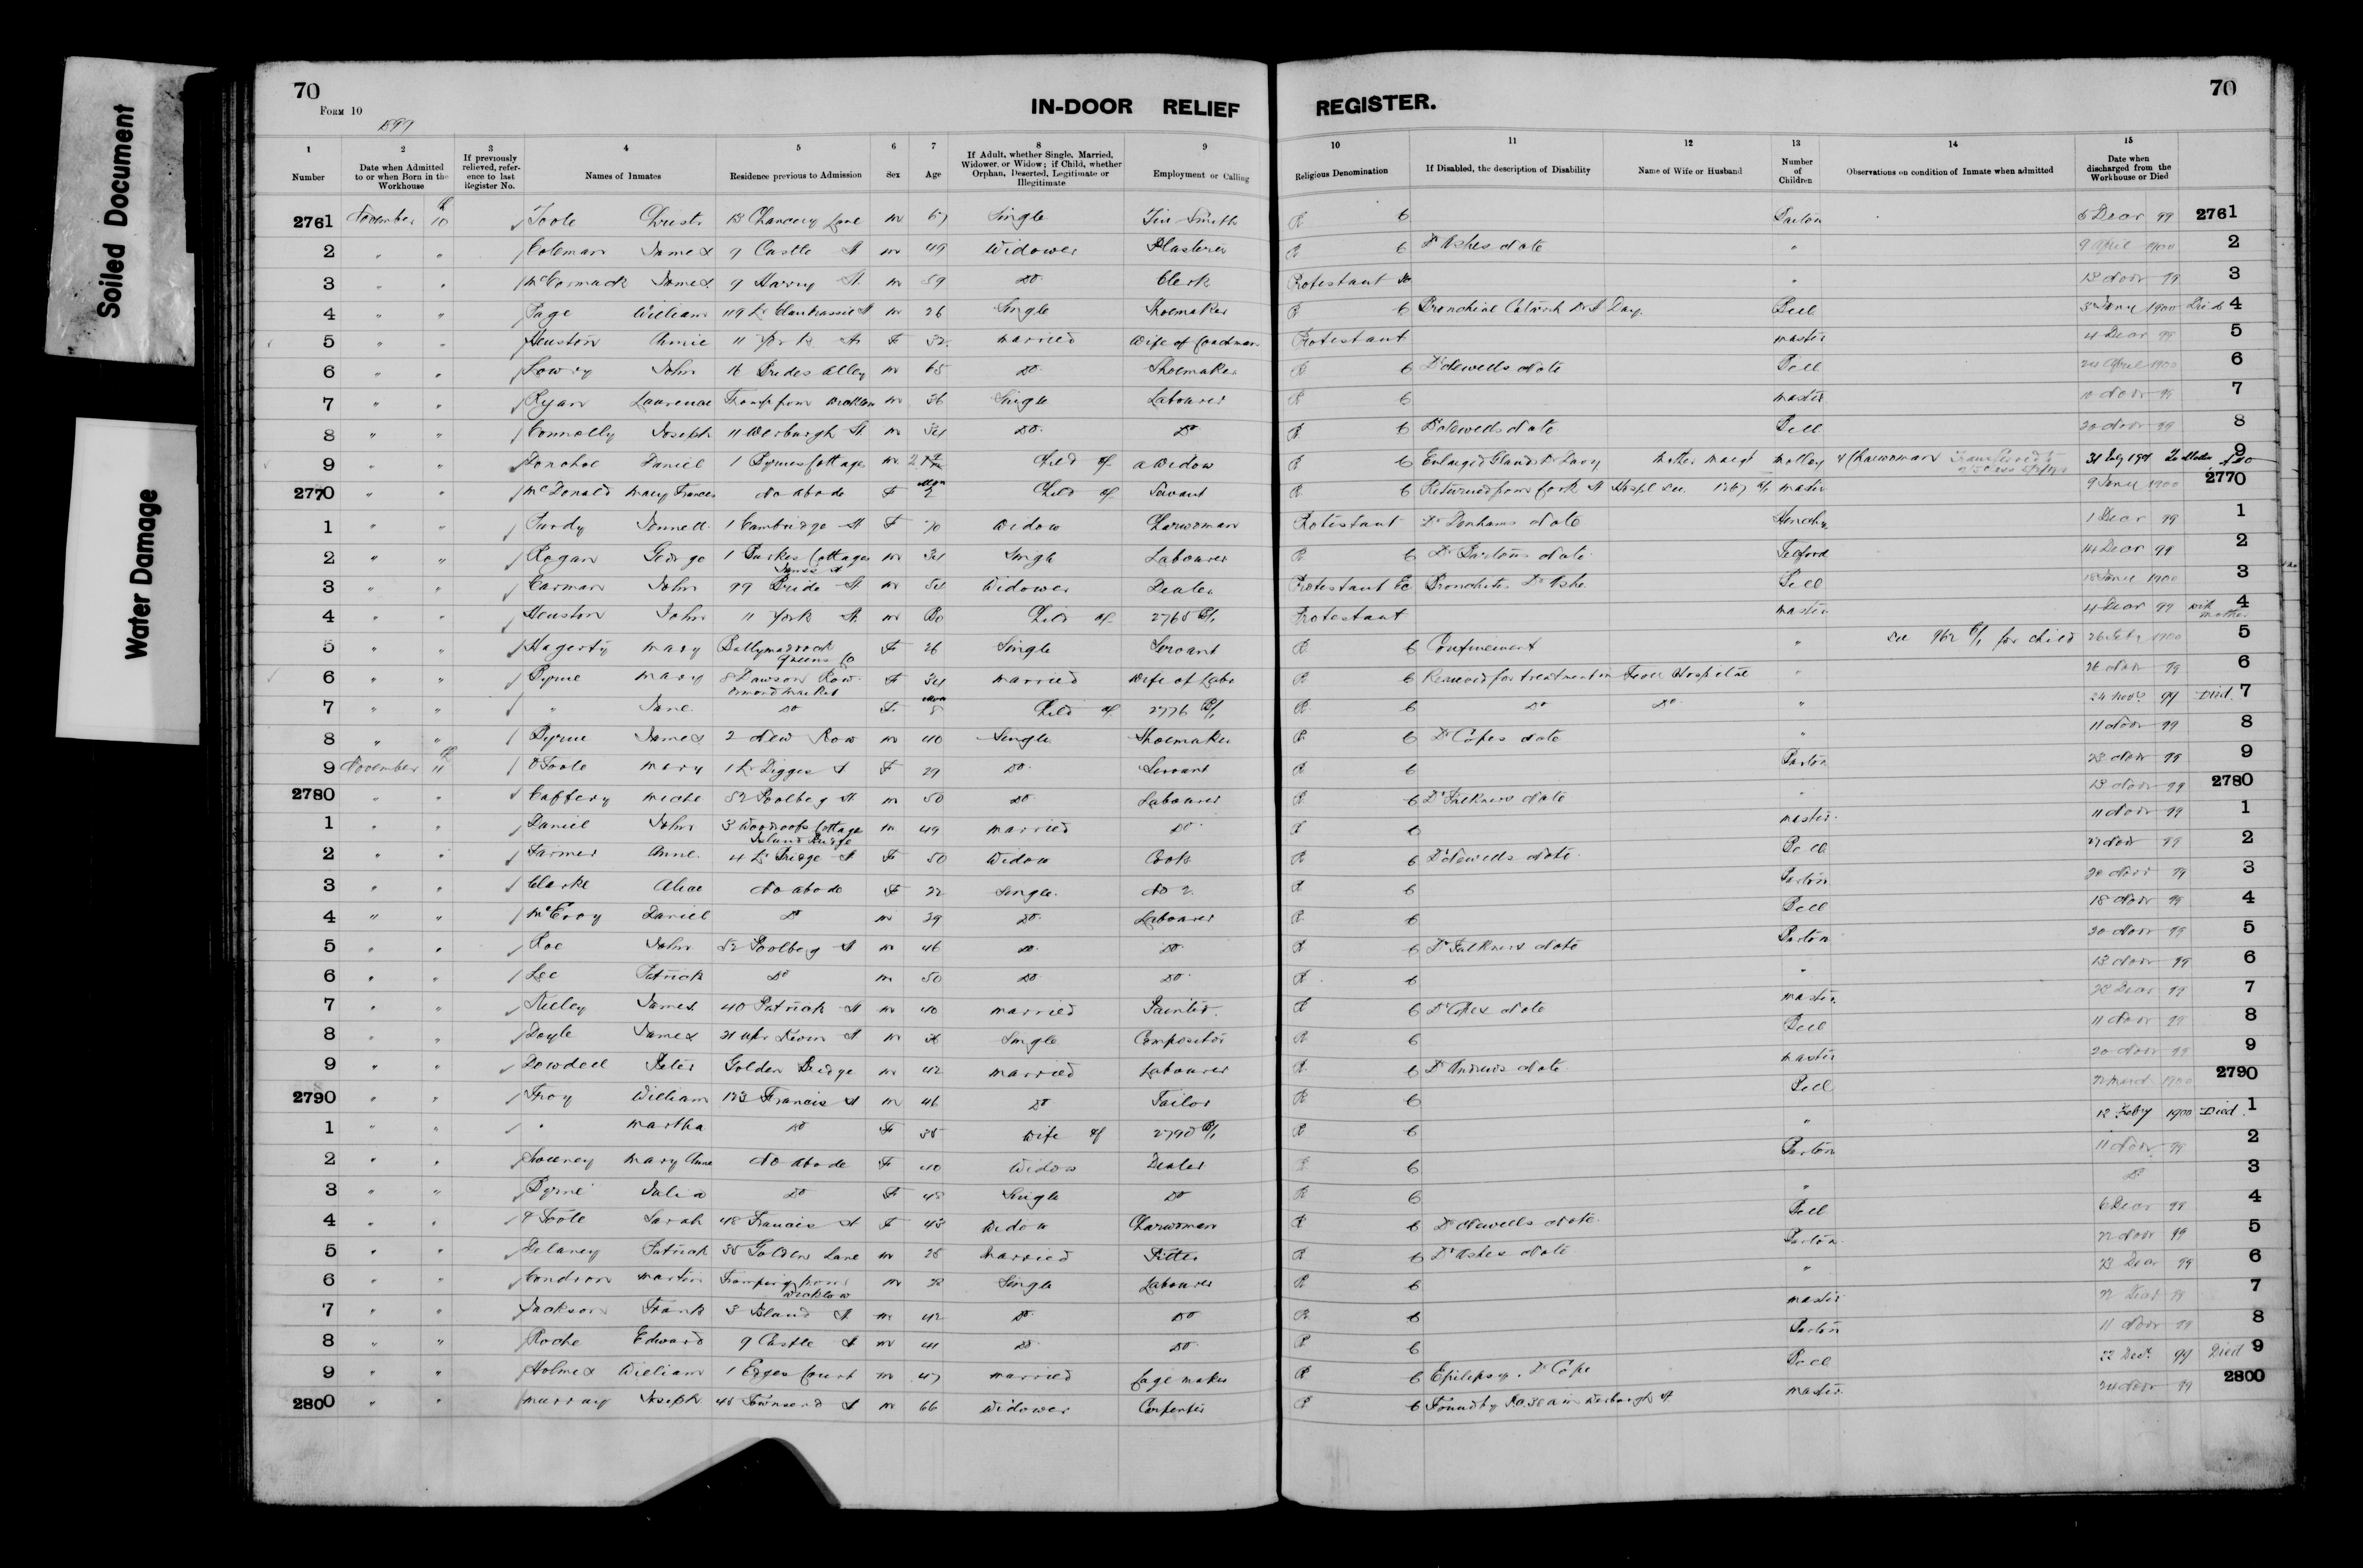 Soiled Document
Water Damage
70
FORM 10
1899
IN-DOOR RELIEF REGISTER.
70
1 Number
2 Date when Admitted to or when Born in the Workhouse
3 If previously relieved, reference to last Register No.
4 Names of Inmates
5 Residence previous to Admission
6 Sex
7 Age
8 If Adult, whether Single, Married, Widower, or Widow; if Child, whether Orphan, Deserted, Legitimate or Illegitimate
9 Employment or Calling
10 Religious Denomination
11 If Disabled, the description of Disability
12 Name of Wife or Husband
13 Number of Children
14 Observations on condition of Inmate when admitted
15 Date when discharged from the Workhouse or Died
2761 November 10th Toole Christr 13 Chancery Lane m 67 Single Tin Smith R C Parton 5 Decr 99 2761
2 " " Coleman James 9 Castle St m 49 Widower Plasterer R C Dr Ashes Note " 9 April 1900 2
3 " " McCormack James 9 Harry St m 59 Do Clerk Protestant " 13 Novr 99 3
4 " " Page William m 26 Single Shoemaker R C Bronchial Catarrh Dr Day Bell 3 Jany 1900 Died 4
5 " " Heuston Annie 11 York St F 32 Married Wife of Coachman Protestant Master 4 Decr 99 5
6 " " Lowry John 16 Brides Alley m 65 Do Shoemaker R C Dr Newells Note Bell 24 April 1900 6
7 " " Ryan Laurence Tramp from Wicklow m 36 Single Labourer R C Master 10 Novr 99 7
8 " " Connolly Joseph 11 Werburgh St m 34 Do Do R C Dr Newells Note Bell 20 Novr 99 8
9 " " Donohoe Daniel 1 Byrnes Cottages m Child of a Widow R C Enlarged Glands Mother Margt Molloy 4 Charwoman 31 July 1901 9
2770 " " McDonald Mary Frances No abode F Child of Servant R C Returned from Cork St Hospl see 1267 Master 9 Jany 1900 2770
1 " " Purdy Jennett 1 Cambridge St F 70 Widow Charwoman Protestant Dr Denhams Note 1 Decr 99 1
2 " " Rogan George 1 Parkes Cottages James St m 34 Single Labourer R C Dr Bartons Note Telford 14 Decr 99 2
3 " " Carman John 99 Bride St m 54 Widower Dealer Protestant Bronchitis Dr Ashe Bell 18 Jany 1900 3
4 " " Heuston John 11 York St m Child of 2765 Protestant Master 4 Decr 99 with mother 4
5 " " Hagerty Mary Ballymadrock Queens Co F 26 Single Servant R C Confinement " see 962 for child 26 1900 5
6 " " Byrne Mary 8 Dawson Row Ormond Market F 34 Married Wife of Labr R C Removed for treatment in Fever Hospital " 26 Novr 99 6
7 " " " Jane Do F 8 Child of 2776 R C Do Do " 24 Novr 99 Died 7
8 " " Byrne James 2 New Row m 40 Single Shoemaker R C Dr Copes Note " 11 Novr 99 8
9 November 11th O'Toole Mary 1 Lr Digges St F 29 Do Servant R C Parton 23 Novr 99 9
2780 " " Caffery Michl 52 Poolbeg St m 50 Do Labourer R C Dr Falkners Note " 13 Novr 99 2780
1 " " Daniel John 3 Woodroofs Cottage Island Bridge m 49 Married Do R C Master 11 Novr 99 1
2 " " Farmer Anne 4 Lr Bridge St F 50 Widow Cook R C Dr Newells Note Bell 27 Novr 99 2
3 " " Clarke Alice No abode F 22 Single R C Parton 20 Novr 99 3
4 " " McEvoy Daniel Do m 29 Do Labourer R C Bell 18 Novr 99 4
5 " " Roe John 52 Poolbeg St m 46 Do Do R C Dr Falkners Note Parton 20 Novr 99 5
6 " " Lee Patrick Do m 50 Do Do R C " 13 Novr 99 6
7 " " Neiley James 40 Patrick St m 40 Married Painter R C Dr Copes Note Master 22 Decr 99 7
8 " " Doyle James 21 Upr Kevin St m Single Compositor R C Bell 11 Novr 99 8
9 " " Dowdell Peter Golden Bridge m 42 Married Labourer R C Dr Andrews Note Master 20 Novr 99 9
2790 " " Troy William 123 Francis St m 46 Do Tailor R C Bell 22 March 1900 2790
1 " " " Martha Do F 35 Wife of 2790 R C " 12 Feby 1900 Died 1
2 " " Mary Anne No abode F 40 Widow Dealer R C Parton 11 Novr 99 2
3 " " Byrne Julia Do F 45 Single Do R C " Do 3
4 " " O'Toole Sarah 48 Francis St F 43 Widow Charwoman R C Dr Newells Note Bell 6 Decr 99 4
5 " " Delaney Patrick 35 Golden Lane m 25 Married Fitter R C Dr Ashes Note Parton 22 Novr 99 5
6 " " Condron Martin Tramping from Wicklow m Single Labourer R C " 23 Decr 99 6
7 " " Jackson Frank 3 Island St m 42 Do Do R C Master 22 Decr 99 7
8 " " Roche Edward 9 Castle St m 41 Do Do R C Parton 11 Novr 99 8
9 " " Holmes William 1 Court m 47 Married Cage maker R C Epilepsy Dr Cope Bell 22 Decr 99 Died 9
2800 " " Murray Joseph 45 Townsend St m 66 Widower Carpenter R C Found by in Werburgh St Master 24 Novr 99 2800